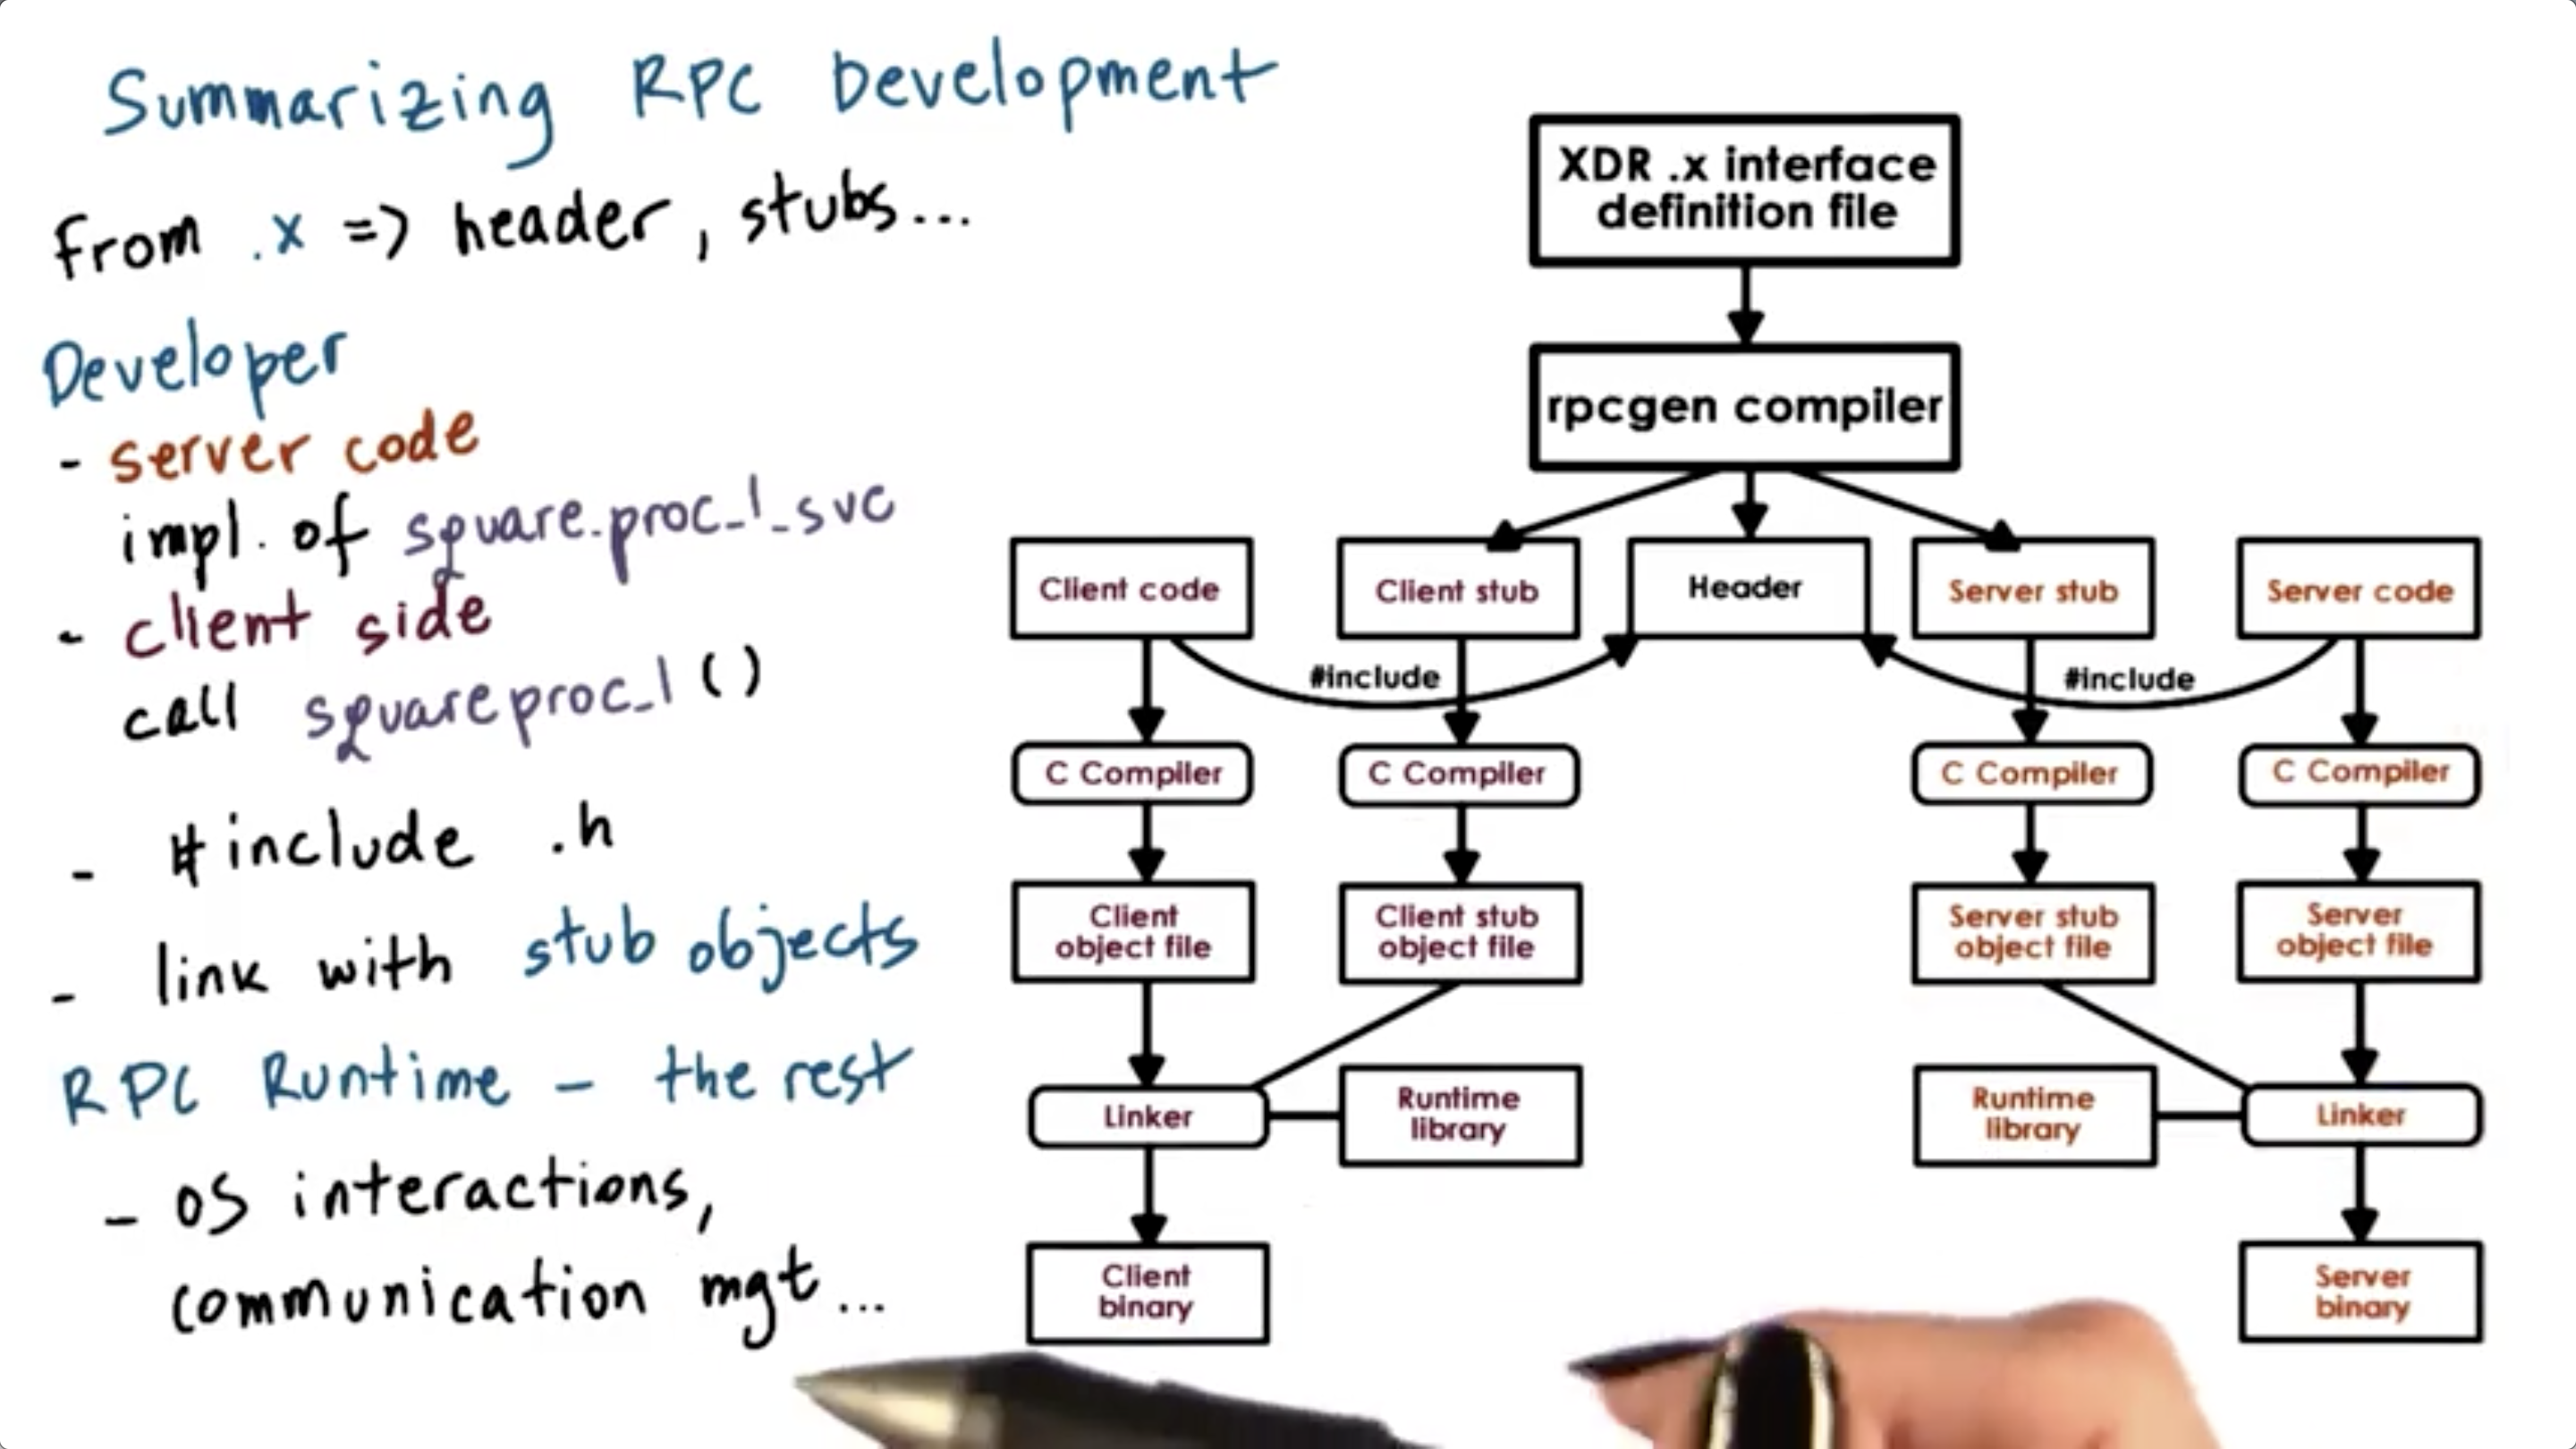 Summarizing RPC Development
from .x => header, stubs...
Developer
- server code
impl. of square.proc_1_svc
- client side
call squareproc_1 ()
- #include .h
- link with stub objects
RPC Runtime - the rest
- OS interactions,
communication mgt...
XDR .x interface
definition file
rpcgen compiler
Client code
Client stub
Header
Server stub
Server code
#include
#include
C Compiler
C Compiler
C Compiler
C Compiler
Client
object file
Client stub
object file
Server stub
object file
Server
object file
Linker
Runtime
library
Runtime
library
Linker
Client
binary
Server
binary